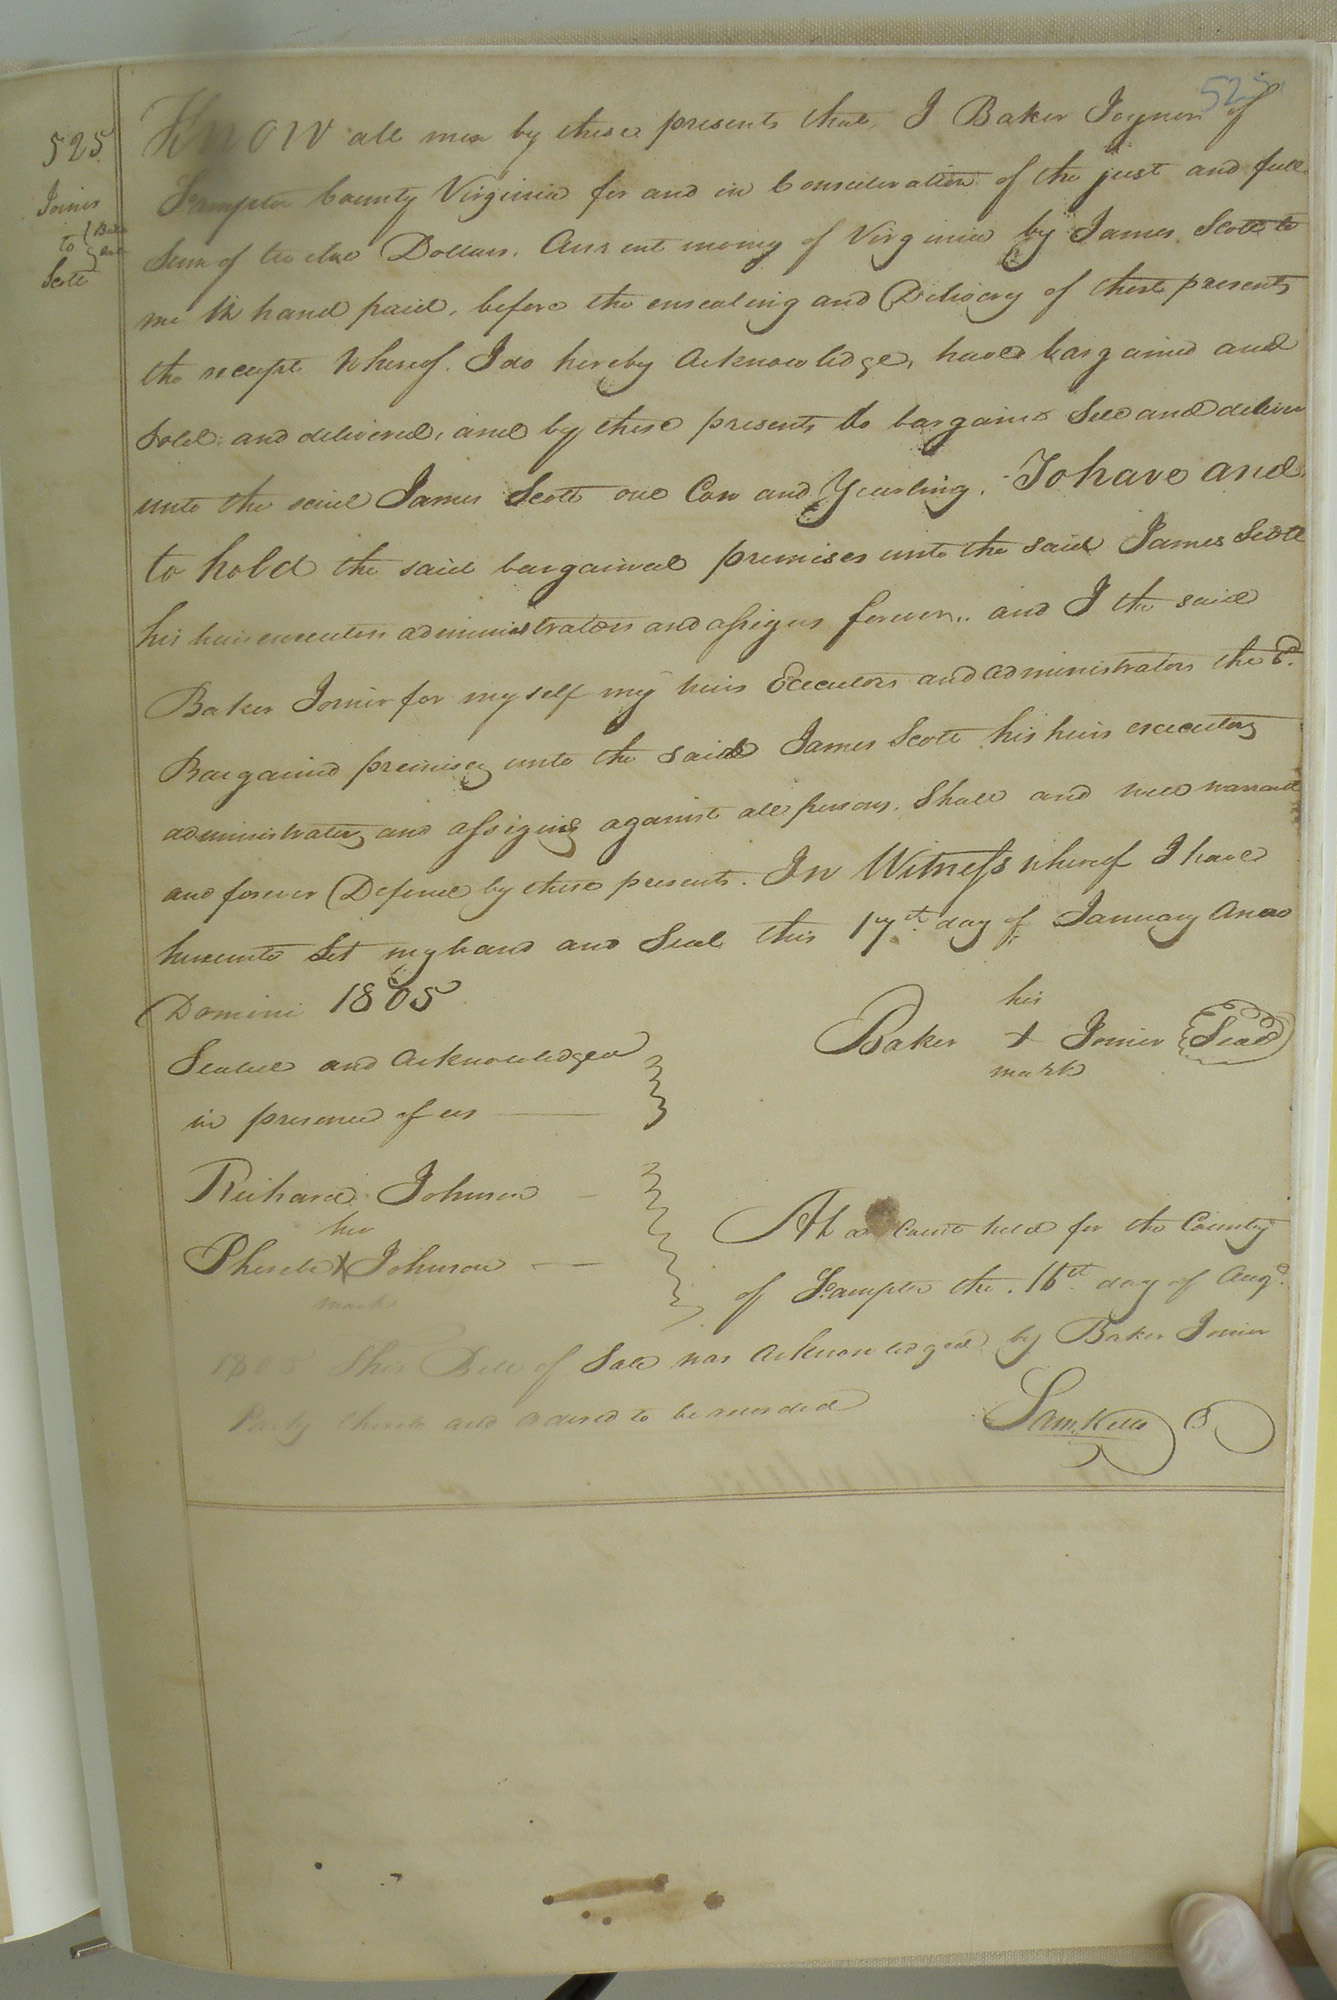 525
525
Joiner
to
Scott
Know all men by these presents that, I Baker Joyner of
S.ampton County Virginia for and in Consideration of the just and full
Sum of twelve Dollars. Current money of Virginia by James Scott to
me in hand paid, before the ensealing and Delivery of these presents
the receipt Whereof. I do hereby Acknowledge, have bargained and
Sold, and delivered, and by these presents do bargain Sell and deliver
unto the said James Scott one Cow and Yearling. To have and
to hold the said bargained premises unto the said James Scott
his heirs executors administrators and assigns forever. and I the said
Baker Joiner for myself my heirs Executors and administrators the Sd.
Bargained premises unto the said James Scott his heirs executors
administrators and assigns against all persons. Shall and will warrant
and forever Defend by these presents. In Witness whereof I have
hereunto Set my hand and Seal this 17th. day of January Anno
Domini 1805
his
Baker + Joiner Seal
mark
Sealed and Acknowledged
in presence of us
Richard Johnson
her
Pherebe + Johnson
mark
At a Court held for the County
of S.ampton the 16th. day of Augt.
1805 This Bill of Sale was Acknowledged by Baker Joiner
Party thereto and ordered to be recorded
Sam. Kello